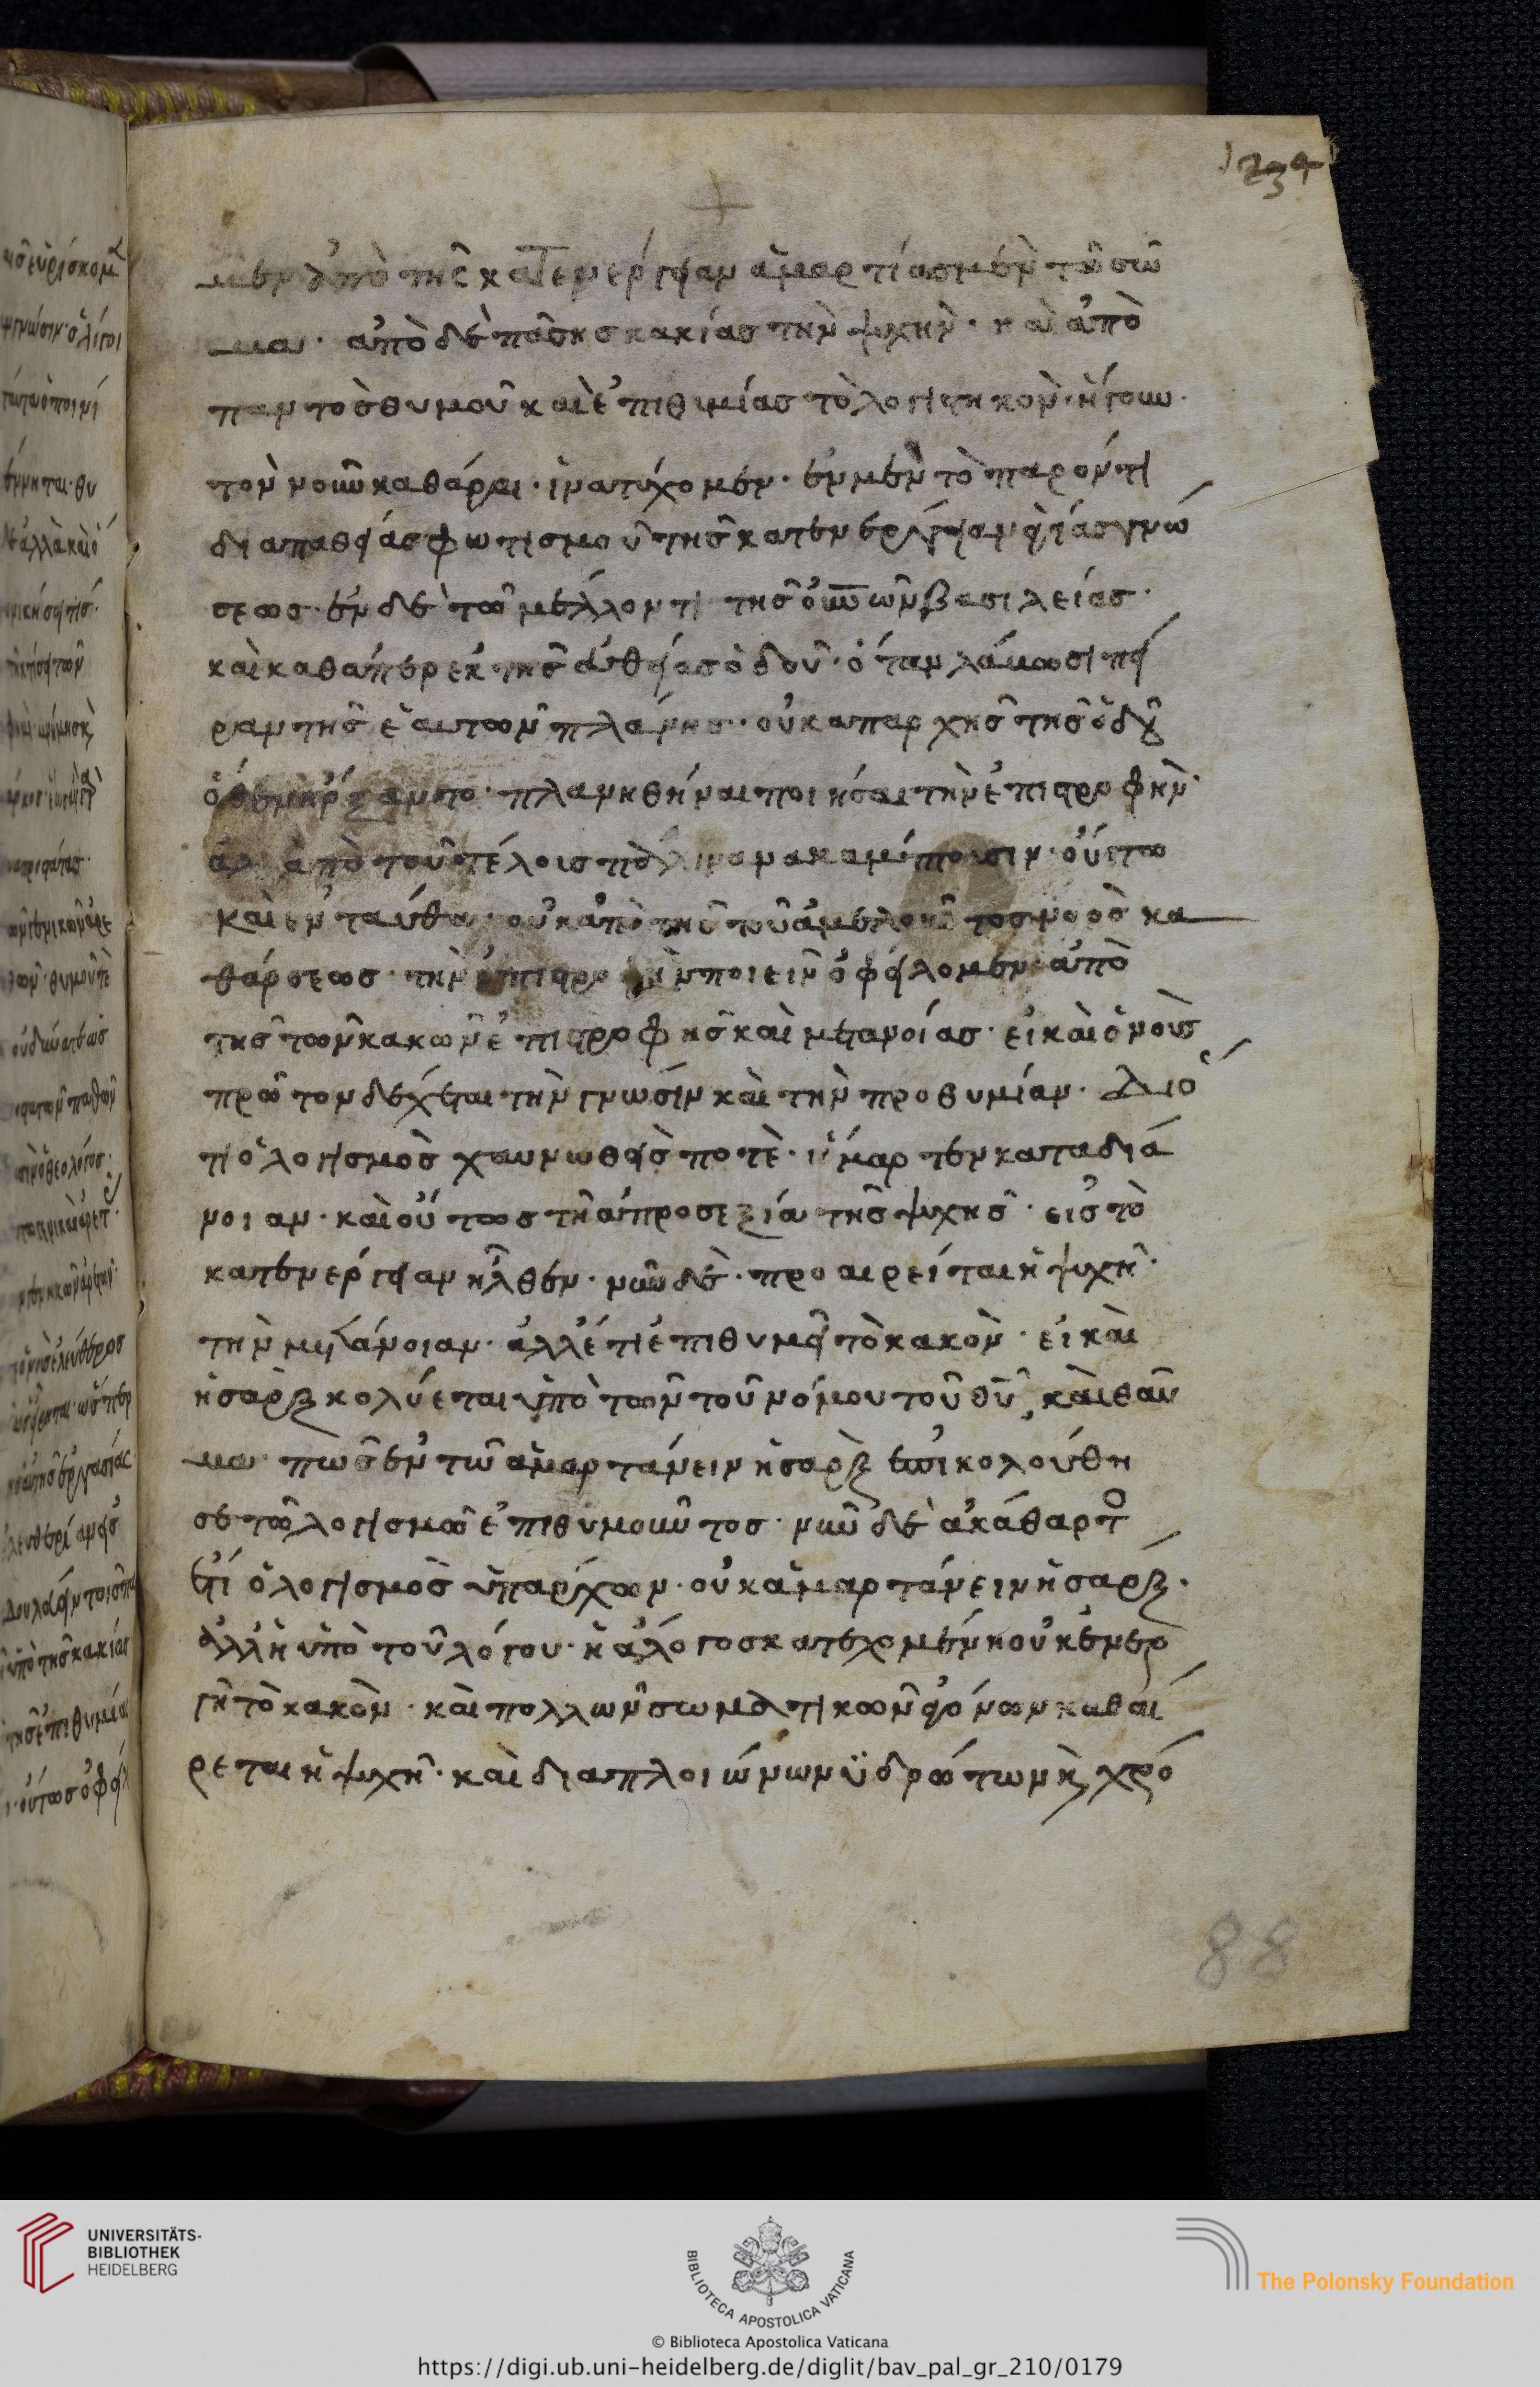 234
μὲν ἀπὸ τῆς κατενέργειαν ἁμαρτίας μὲν τὸ σῶ
μα· ἀπὸ δὲ πάσης κακίας τὴν ψυχὴν· καὶ ἀπὸ
παντὸς θυμοῦ καὶ ἐπιθυμίας τὸ λογιτικὸν· ἤγουν
τὸν νοῦν καθάραι· ἵνα τύχομεν· ἐν μὲν τὸ παρόντι
διαπαθείας φωτισμοῦ τῆς κατενέργειαν θείας γνώ
σεως· ἐν δὲ τῶ μέλλοντι τῆς οὐνῶν βασιλείας·
καὶ καθάπερ ἐκ τῆς εὐθείας ὁδοῦ· ὅταν λάβωσι πεί
ραν τῆς ἑαυτῶν πλάνης· οὐκ απαρχῆς τῆς ὁδοῦ
ὅθεν ἤρξαντο· πλανηθῆναι ποιῆσαι τὴν ἐπιστροφὴν·
ἀπὸ τοῦ τέλους πάλιν ἀνακάμπουσιν· οὕτω
καὶ ἐνταῦθα· οὐκ ἀπὸ τῆς τοῦ ἀμελοῦντος νοὸς κα
θάρσεως· τὴν ἐπιστροφὴν ποιεῖν ὀφείλομεν· ἀπὸ
τῆς τῶν κακῶν ἐπιστροφῆς καὶ μετανοίας· εἰ καὶ ὁ νοῦς
πρῶτον δέχεται τὴν γνῶσιν καὶ τὴν προθυμίαν· Διό
τι ὁ λογισμὸς χαυνωθεὶς ποτὲ· ἥμαρτεν καταδιά
νοιαν· καὶ οὕτως τῆ ἀπροσεξία τῆς ψυχῆς· εἰς τὸ
κατενεργειαν ἦλθεν· νῦν δὲ· προαιρεῖται ἡ ψυχὴ·
τὴν μετάνοιαν· ἀλλ' ἔτι ἐπιθυμεῖ τὸ κακὸν· εἰ καὶ
ἡ σὰρξ κολύεται ὑπὸ τῶν τοῦ νόμου τοῦ θυ καὶ θαῦ
μα πῶς ἐν τῶ ἁμαρτάνειν ἡ σὰρξ ἐπικολούθη
σε τῶ λογισμῶ ἐπιθυμοῦντος· νῦν δὲ ἀκάθαρτο
ἔτι ὁ λογισμὸς ὑπάρχων· οὐκ ἁμαρτάνειν ἡ σαρξ·
ἀλλ' ἡ ὑπὸ τοῦ λόγου· ἡ ἄλογος κατεχομένη οὐκ ἐνερ
γῆ τὸ κακὸν· καὶ πολλῶν σωματικῶν πόνων καθαί
ρεται ἡ ψυχὴ· καὶ διαπλοιώνων ϋδρώτων κ χρό
88
UNIVERSITÄTS-
BIBLIOTHEK
HEIDELBERG
BIBLIOTECA APOSTOLICA VATICANA
The Polonsky Foundation
© Biblioteca Apostolica Vaticana
https://digi.ub.uni-heidelberg.de/diglit/bav_pal_gr_210/0179